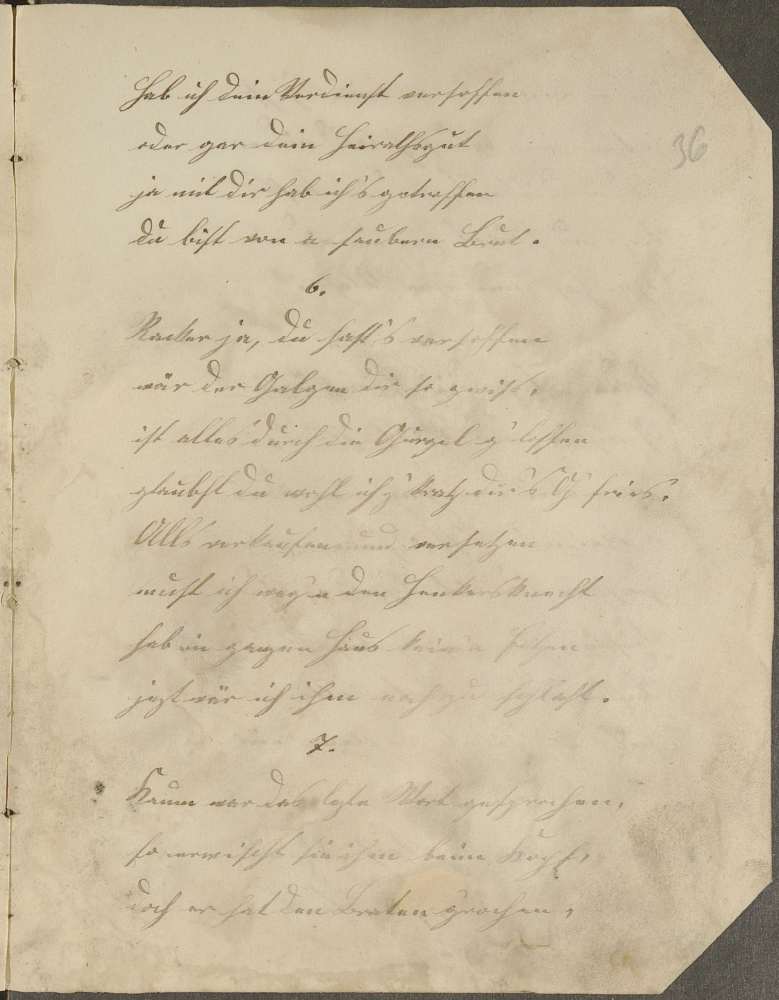 hab ich dein Verdienst versoffen
36
oder gar dein Heirathsgut
ja mit dir hab ich's getroffen
du bist von a saubern Brut.
6.
Racker ja, du hast's versoffen
wär der Galgen dir so gwiß,
ist alles durch die Gurgel g'loffen
glaubst du wohl ich kratz dir's G'fries.
Alls verkaufen und versetzen
must ich weg'n den Henkersknecht
hab im ganzen Haus kein Fetzen
jezt wär ich ihm noch zu schlecht.
7.
Kaum war das lezte Wort gesprochen,
so erwischt sie ihm beim Kopf,
doch er hat den Braten grochen,